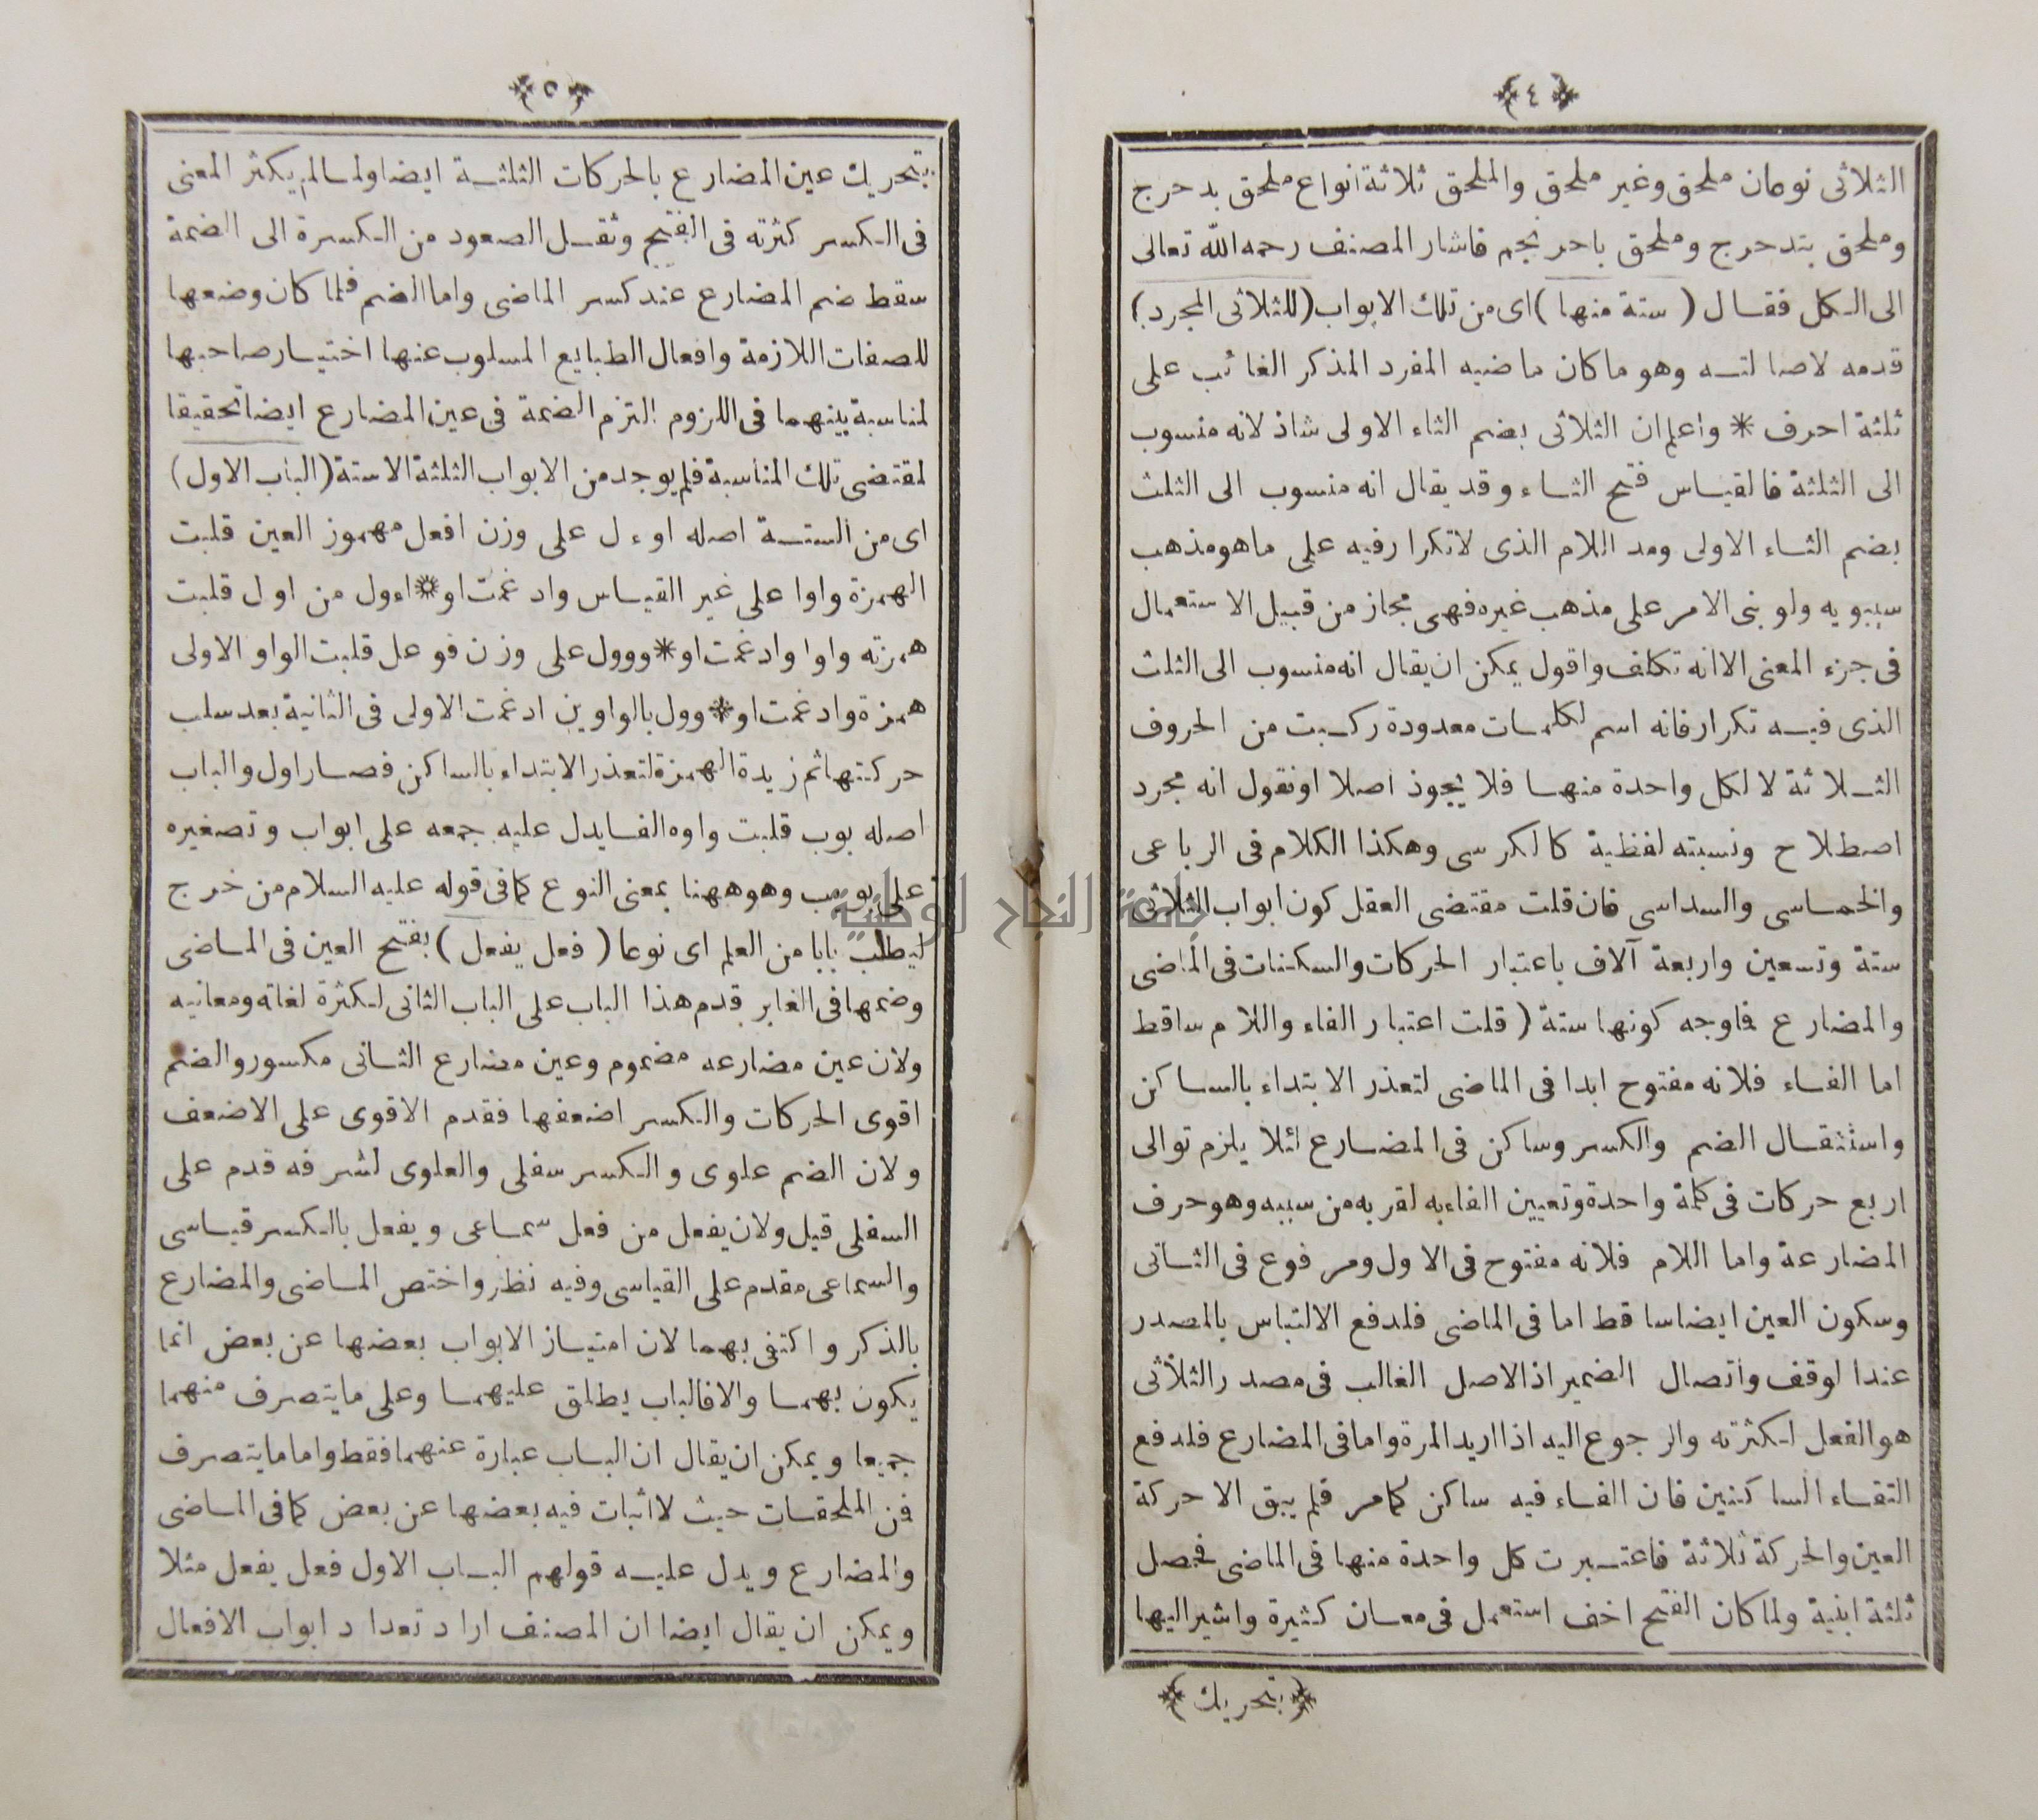 ﴿٤﴾
الثلاثى نوعان ملحق وغير ملحق والملحق ثلاثة انواع ملحق بدحرج
وملحق بتدحرج وملحق باحرنجم فاشار المصنف رحمه الله تعالى
الى الكل فقال ( ستة منها ) اى من تلك الابواب (للثلاثى المجرد)
قدمه لاصالته وهو ما كان ماضيه المفرد المذكر الغائب على
ثلثة احرف * واعلم ان الثلاثى بضم الثاء الاولى شاذ لانه منسوب
الى الثلثة فالقياس فتح الثاء وقد يقال انه منسوب الى الثلث
بضم الثاء الاولى ومد اللام الذى لاتكرار فيه على ماهو مذهب
سيبويه ولو بنى الامر على مذهب غيره فهى مجاز من قبيل الاستعمال
فى جزء المعنى الا انه تكلف واقول يمكن ان يقال انه منسوب الى الثلث
الذى فيه تكرار فانه اسم لكلمات معدودة ركبت من الحروف
الثلاثة لا لكل واحدة منها فلا يجوذ اصلا او نقول انه مجرد
اصطلاح ونسبته لفظية كالكرسى وهكذا الكلام فى الرباعى
والخماسى والسداسى فان قلت مقتضى العقل كون ابواب الثلاثى
ستة وتسعين واربعة آلاف باعتبار الحركات والسكنات فى الماضى
والمضارع فاوجه كونها ستة ( قلت اعتبار الفاء واللام ساقط
اما الفاء فلانه مفتوح ابدا فى الماضى لتعذر الابتداء بالساكن
واستثقال الضم والكسر وساكن فى المضارع لئلا يلزم توالى
اربع حركات فى كلمة واحدة وتعيين الفاء به لقربه من سببه وهو حرف
المضارعة واما اللام فلانه مفتوح فى الاول ومرفوع فى الثانى
وسكون العين ايضا ساقط اما فى الماضى فلدفع الالتباس بالمصدر
عند الوقف واتصال الضمير اذ الاصل الغالب فى مصدر الثلاثى
هو الفعل لكثرته والرجوع اليه اذا اريد المرة واما فى المضارع فلدفع
التقاء الساكنين فان الفاء فيه ساكن كما مر فلم يبق الا حركة
العين والحركة ثلاثة فاعتبرت كل واحدة منها فى الماضى فحصل
ثلثة ابنية ولما كان الفتح اخف استعمل فى معان كثيرة واشير اليها
﴿ بتحريك ﴾
﴿٥﴾
بتحريك عين المضارع بالحركات الثلثة ايضا ولما لم يكثر المعنى
فى الكسر كثرته فى الفتح وثقل الصعود من الكسرة الى الضمة
سقط ضم المضارع عند كسر الماضى واما الضم فلما كان وضعها
للصفات اللازمة وافعال الطبايع المسلوب عنها اختيار صاحبها
لمناسبة بينهما فى اللزوم التزم الضمة فى عين المضارع ايضا تحقيقا
لمقتضى تلك المناسبة فلم يوجد من الابواب الثلثة الا ستة (الباب الاول)
اى من الستة اصله اوءل على وزن افعل مهموز العين قلبت
الهمزة واوا على غير القياس وادغمت او * اءول من اول قلبت
همزته واوا وادغمت او * ووول على وزن فوعل قلبت الواو الاولى
همزة وادغمت او * وول بالواوين ادغمت الاولى فى الثانية بعد سلب
حركتها ثم زيدة الهمزة لتعذر الابتداء بالساكن فصار اول والباب
اصله بوب قلبت واوه الفا يدل عليه جمعه على ابواب وتصغيره
على بويب وهو ههنا بمعنى النوع كما فى قوله عليه السلام من خرج
ليطلب بابا من العلم اى نوعا ( فعل يفعل ) بفتح العين فى الماضى
وضمها فى الغابر قدم هذا الباب على الباب الثانى لكثرة لغاته ومعانيه
ولان عين مضارعه مضموم وعين مضارع الثانى مكسور والضم
اقوى الحركات والكسر اضعفها فقدم الاقوى على الاضعف
ولان الضم علوى والكسر سفلى والعلوى لشرفه قدم على
السفلى قيل ولان يفعل من فعل سماعى ويفعل بالكسر قياسى
والسماعى مقدم على القياسى وفيه نظر واختص الماضى والمضارع
بالذكر واكتفى بهما لان امتياز الابواب بعضها عن بعض انما
يكون بهما والا فالباب يطلق عليهما وعلى ما يتصرف منهما
جميعا ويمكن ان يقال ان الباب عبارة عنهما فقط واما ما يتصرف
فن الملحقات حيث لا اثبات فيه بعضها عن بعض كما فى الماضى
والمضارع ويدل عليه قولهم الباب الاول فعل يفعل مثلا
ويمكن ان يقال ايضا ان المصنف اراد تعداد ابواب الافعال
جامعة النجاح الوطنية